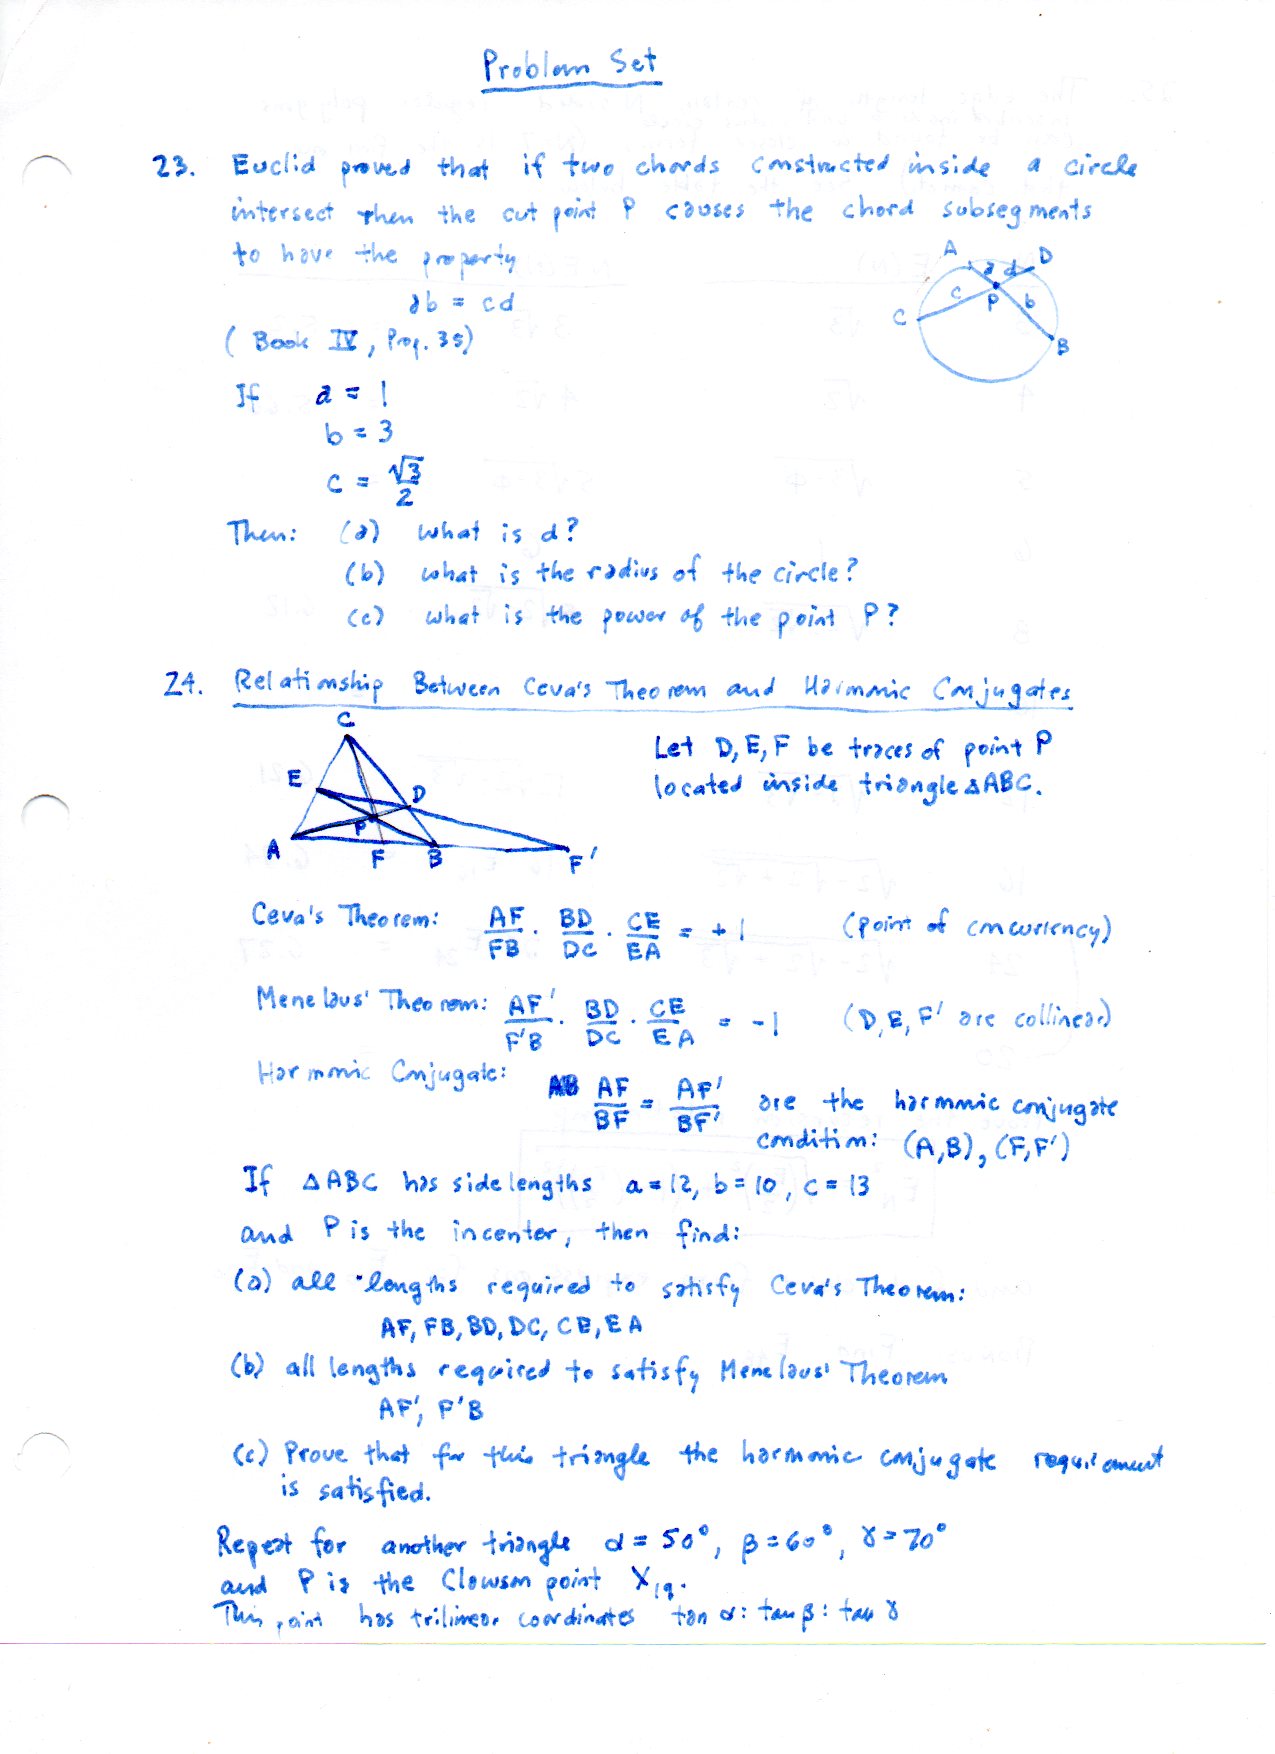 Problem Set
23. Euclid proved that if two chords constructed inside a circle
intersect then the cut point P causes the chord subsegments
to have the property
ab = cd
( Book IV, Prop. 35)
A a d D
c P b
C B
If a = 1
b = 3
c = √3/2
Then: (a) what is d?
(b) what is the radius of the circle?
(c) what is the power of the point P?
24. Relationship Between Ceva's Theorem and Harmonic Conjugates
C
E D
P
A F B F'
Let D, E, F be traces of point P
located inside triangle △ABC.
Ceva's Theorem: AF/FB · BD/DC · CE/EA = +1 (point of concurrency)
Menelaus' Theorem: AF'/F'B · BD/DC · CE/EA = -1 (D, E, F' are collinear)
Harmonic Conjugate: AF/BF = AF'/BF' are the harmonic conjugate
condition: (A,B), (F,F')
If △ABC has side lengths a = 12, b = 10, c = 13
and P is the incenter, then find:
(a) all lengths required to satisfy Ceva's Theorem:
AF, FB, BD, DC, CE, EA
(b) all lengths required to satisfy Menelaus' Theorem
AF', F'B
(c) Prove that for this triangle the harmonic conjugate requirement
is satisfied.
Repeat for another triangle α = 50°, β = 60°, γ = 70°
and P is the Clawson point X19.
This point has trilinear coordinates tan α : tan β : tan γ